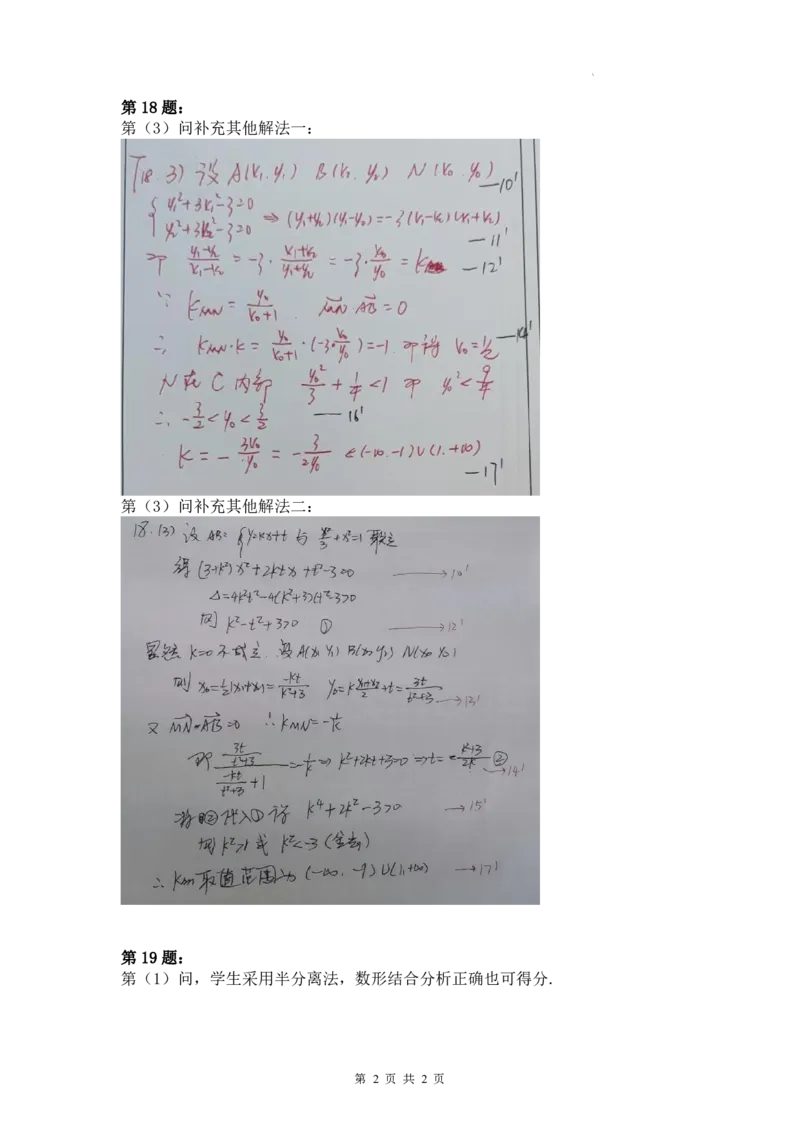 第18题：
第（3）问补充其他解法一：
T18.3) 设 A(x₁,y₁) B(x₂,y₂) N(x₀,y₀) —10'
{ y₁²+3x₁²-3=0
y₂²+3x₂²-3=0 ⇒ (y₁+y₂)(y₁-y₂)=-3(x₁-x₂)(x₁+x₂) —11'
即 (y₁-y₂)/(x₁-x₂) = -3·(x₁+x₂)/(y₁+y₂) = -3·x₀/y₀ = k —12'
∵ k_MN = y₀/(x₀+1) . MN·AB=0
∴ k_MN·k = y₀/(x₀+1)·(-3·x₀/y₀)=-1. 即得 x₀=1/2 —14'
N在C内部 y₀²/3+1/4<1 即 y₀²<9/4
∴ -3/2<y₀<3/2 —16'
k=-3x₀/y₀ = -3/2y₀ ∈(-∞,-1)∪(1,+∞) —17'
第（3）问补充其他解法二：
18.(3) 设 AB: {y=kx+t 与 y²/3+x²=1 联立
得 (3+k²)x²+2ktx+t²-3=0 →10'
Δ=4k²t²-4(k²+3)(t²-3)>0
则 k²-t²+3>0 ① →12'
k=0不成立. 设A(x₁ y₁) B(x₂ y₂) N(x₀ y₀)
则 x₀=1/2(x₁+x₂)=-kt/(k²+3) y₀=k(x₁+x₂)/2+t=3t/(t²+3) →13'
又 MN·AB=0 ∴k_MN=-1/k
即 (3t/(t²+3))/(-kt/(t²+3)+1)=-1/k ⇒ k²+2kt+3=0 ⇒t=-(k²+3)/2k ② →14'
将②代入①得 k⁴+2k²-3>0 →15'
则 k²>1 或 k²<-3 (舍去)
∴ 取值范围为 (-∞,-1)∪(1,+∞) →17'
第19题：
第（1）问，学生采用半分离法，数形结合分析正确也可得分.
第 2 页 共 2 页